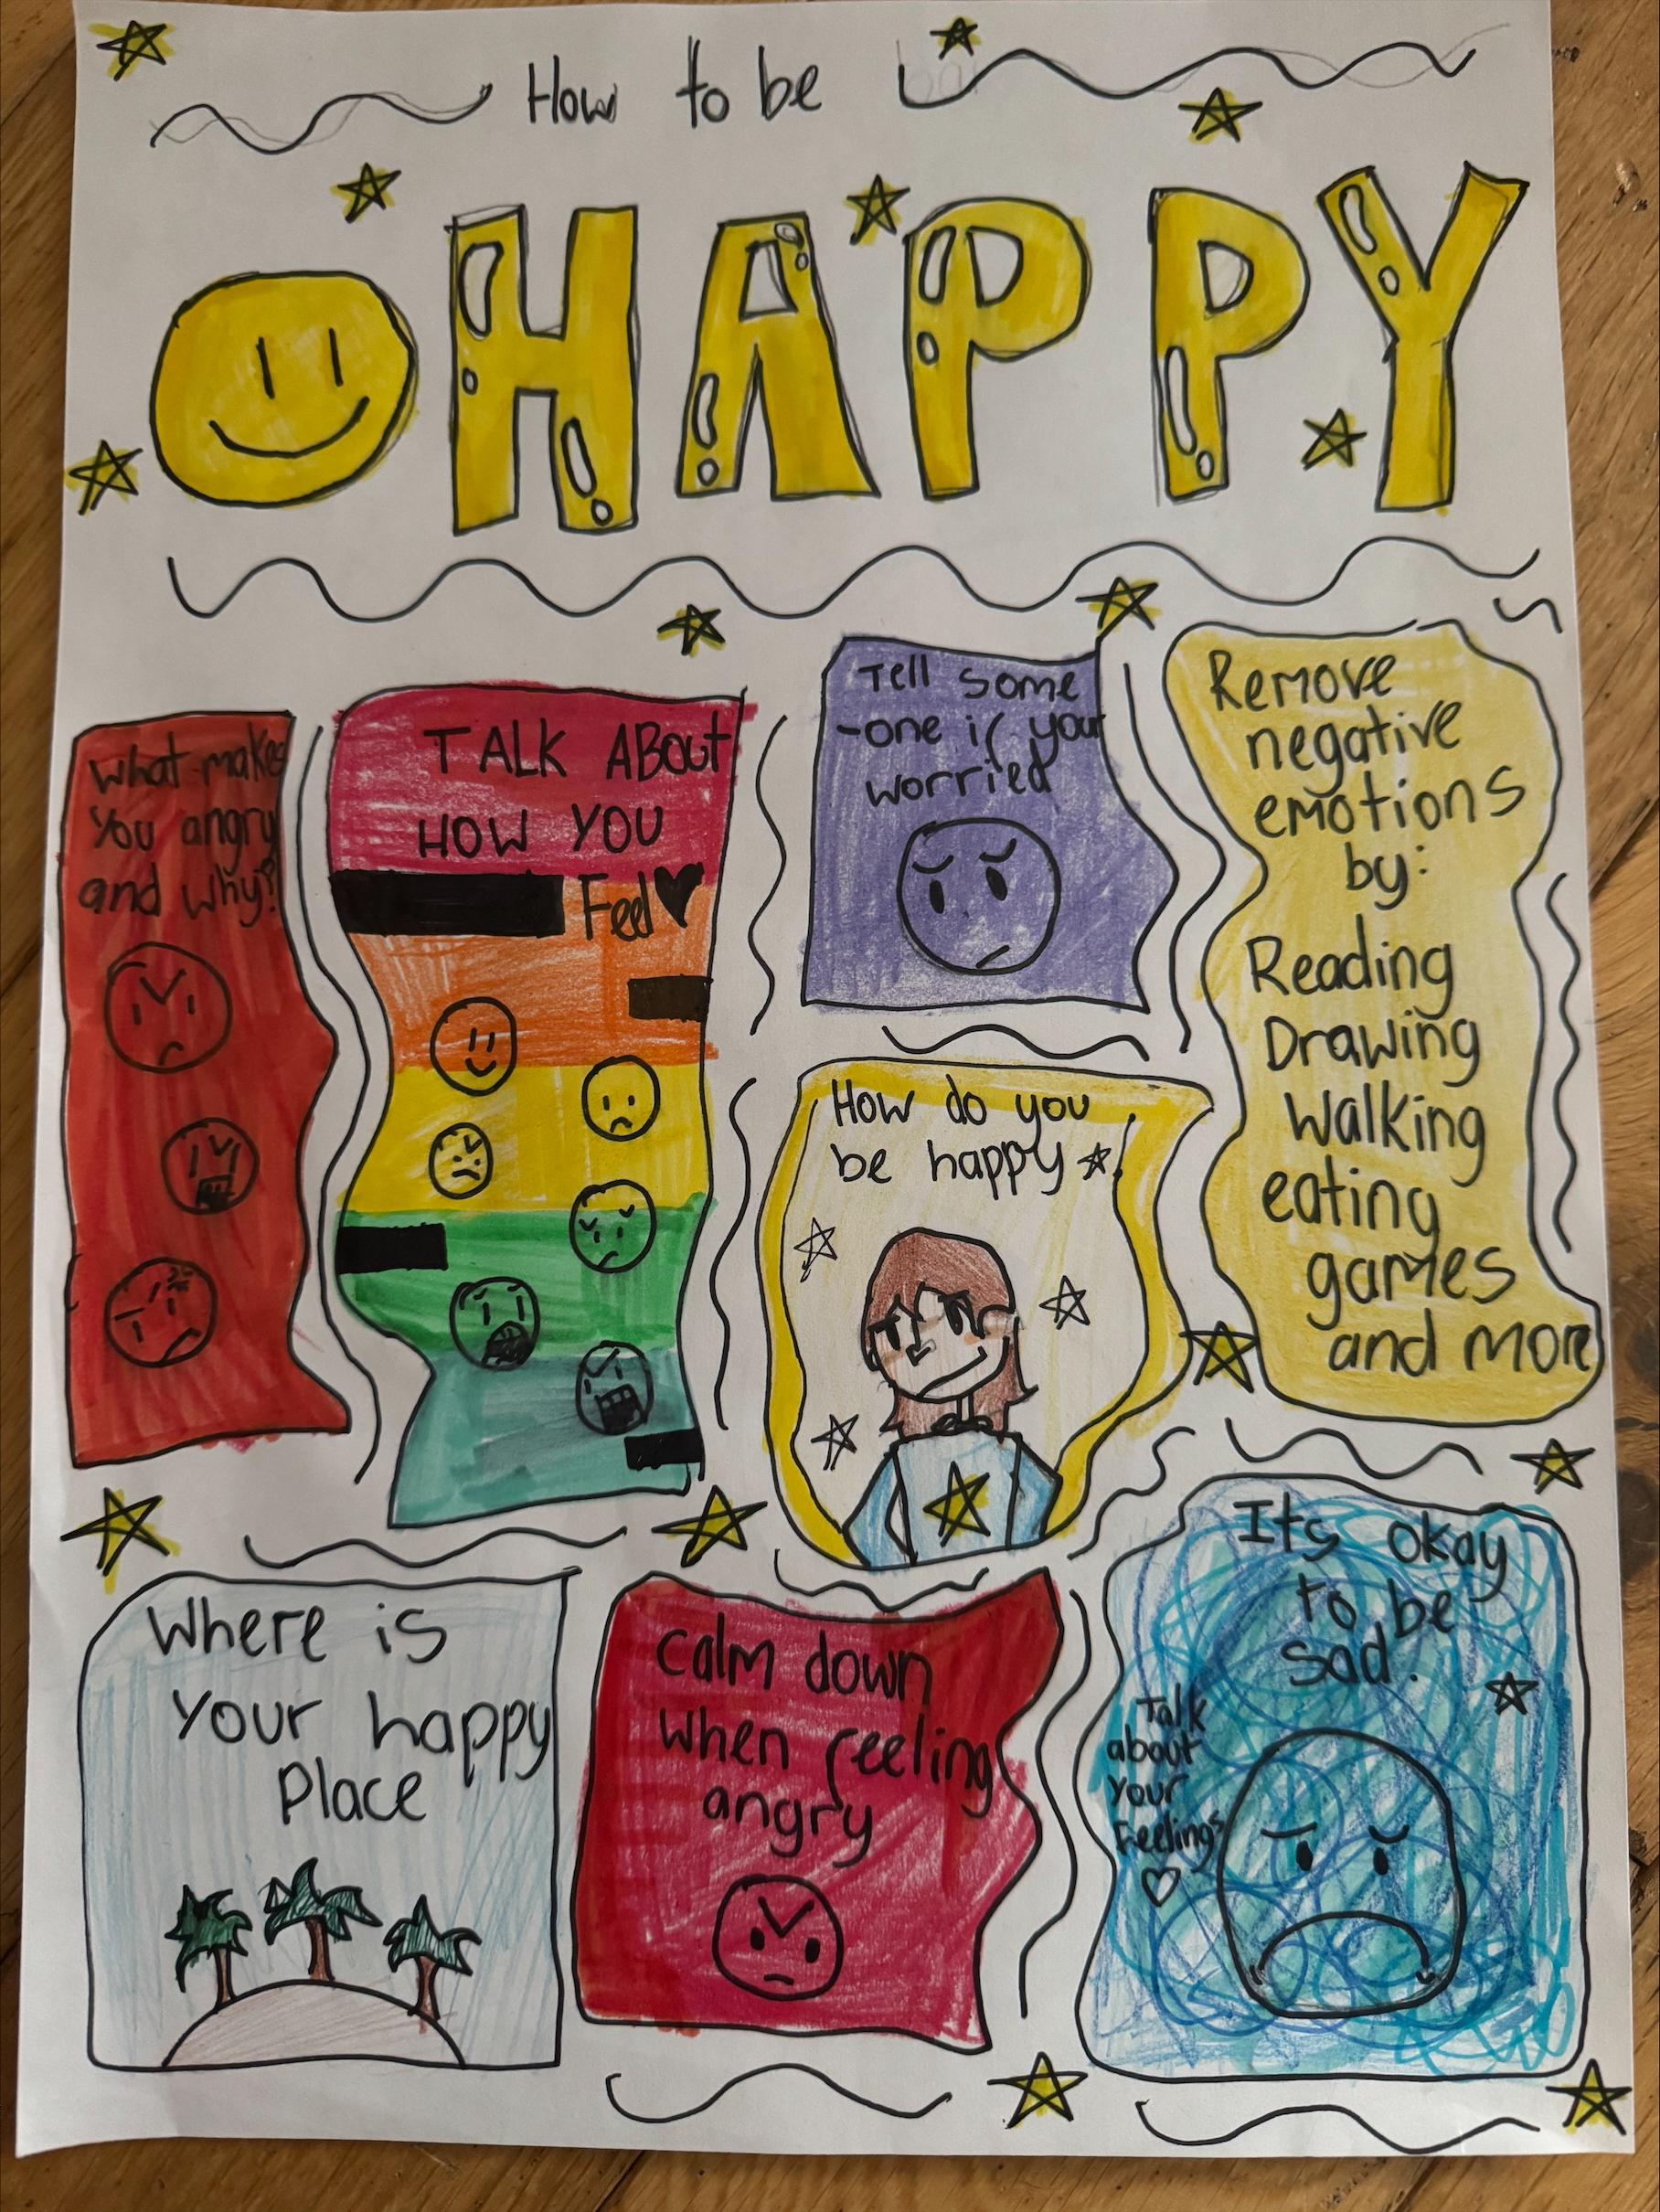 How to be
HAPPY
What makes
You angry
and why?
TALK ABout
HOW YOU
Feel
Tell some
-one if your
worried
Remove
negative
emotions
by:
Reading
Drawing
Walking
eating
games
and more
How do you
be happy
Where is
Your happy
Place
calm down
When feeling
angry
Its okay
to be
sad.
Talk
about
Your
Feelings